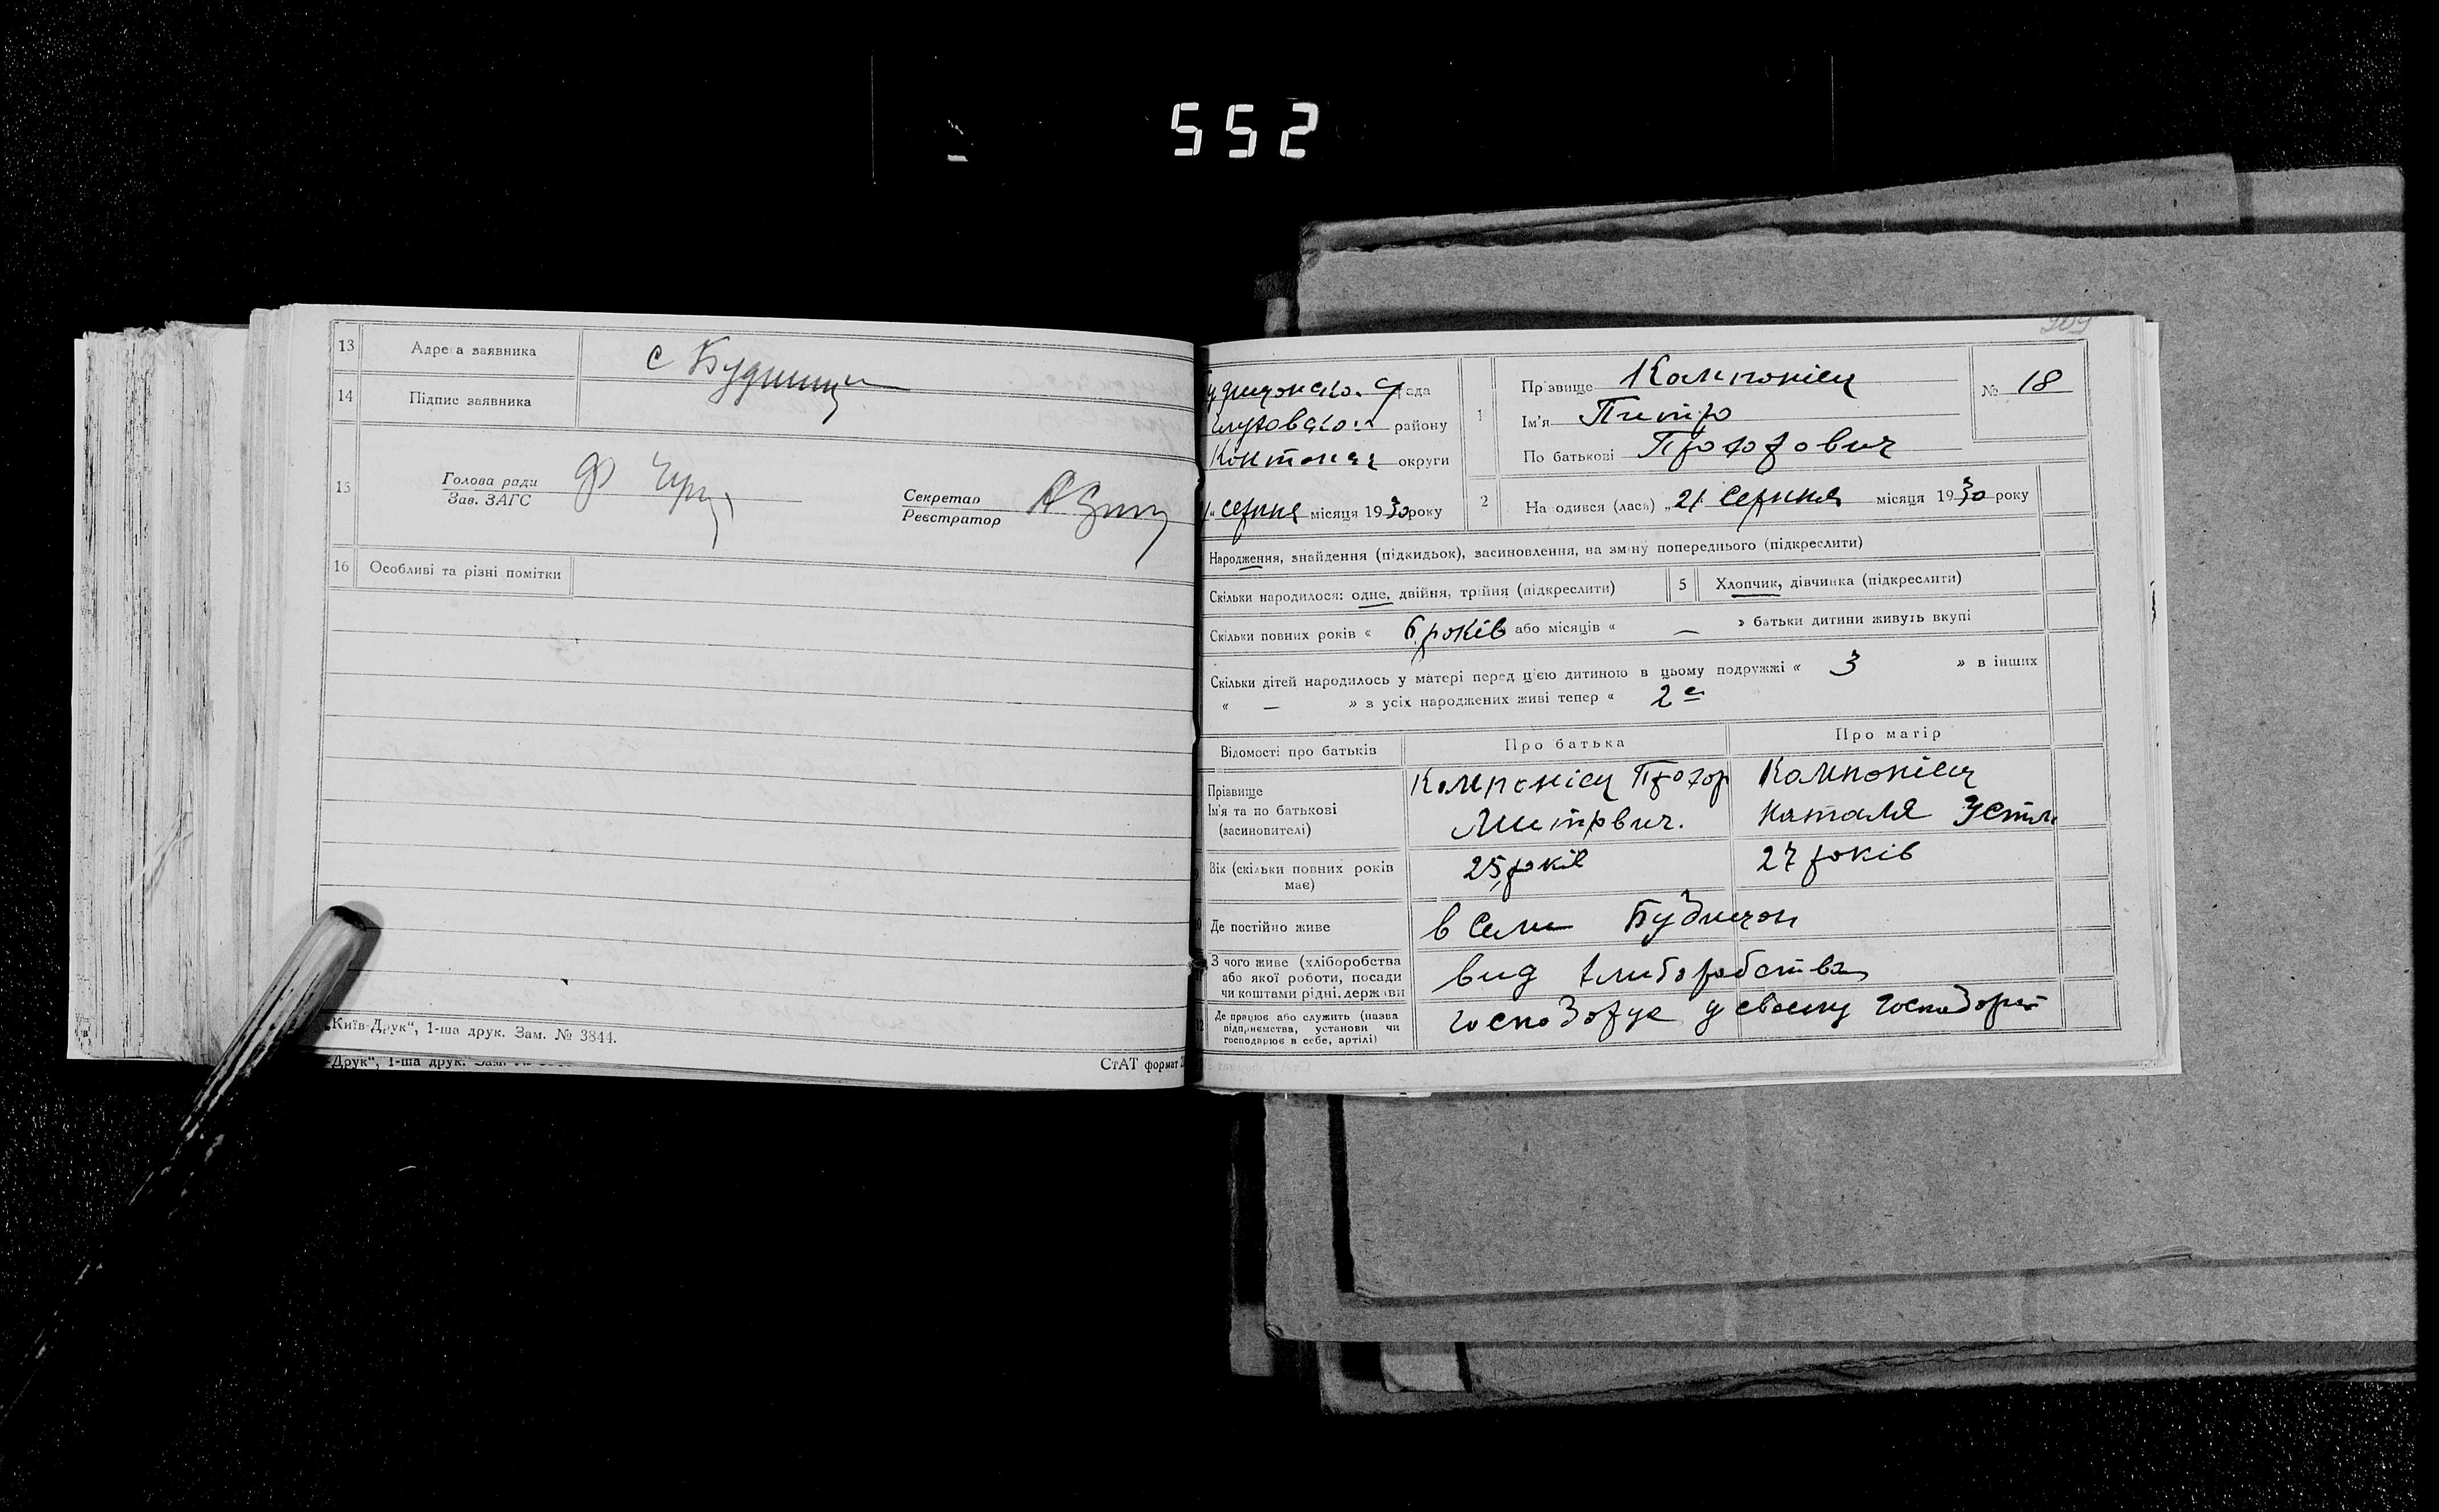 552
13 Адреса заявника с Будищи
14 Підпис заявника
15 Голова ради
Зав. ЗАГС
Секретар
Реєстратор
16 Особливі та різні помітки
„Київ-Друк“, 1-ша друк. Зам. № 3844.
Друк“, 1-ша друк. Зам.
СтАТ формат
209
рада
району
округи
серпня місяця 1930 року
1 Прізвище Компонієц
Ім'я Питро
По батькові Прохорович
№ 18
2 Народився (лась) „21 Серпня місяця 1930 року
Народження, знайдення (підкидьок), засиновлення, на зміну попереднього (підкреслити)
Скільки народилося: одне, двійня, трійня (підкреслити)
5 Хлопчик, дівчинка (підкреслити)
Скільки повних років « 6 років або місяців « — » батьки дитини живуть вкупі
Скільки дітей народилось у матері перед цією дитиною в цьому подружжі « 3 » в інших
« — » з усіх народжених живі тепер « 2є
Відомості про батьків Про батька Про матір
Прізвище
Ім'я та по батькові
(засиновителі)
Компонієц Прохор
Митрвич.
Компонієц
Наталя
Вік (скільки повних років
має)
25 років
27 років
Де постійно живе
в Сели
З чого живе (хліборобства
або якої роботи, посади
чи коштами рідні, держави
вид хлиборобства
Де працює або служить (назва
підприємства, установи чи
господарює в себе, артілі)
господорує у своему